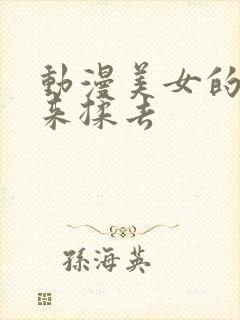 動漫美女的
来揉去
孫海英